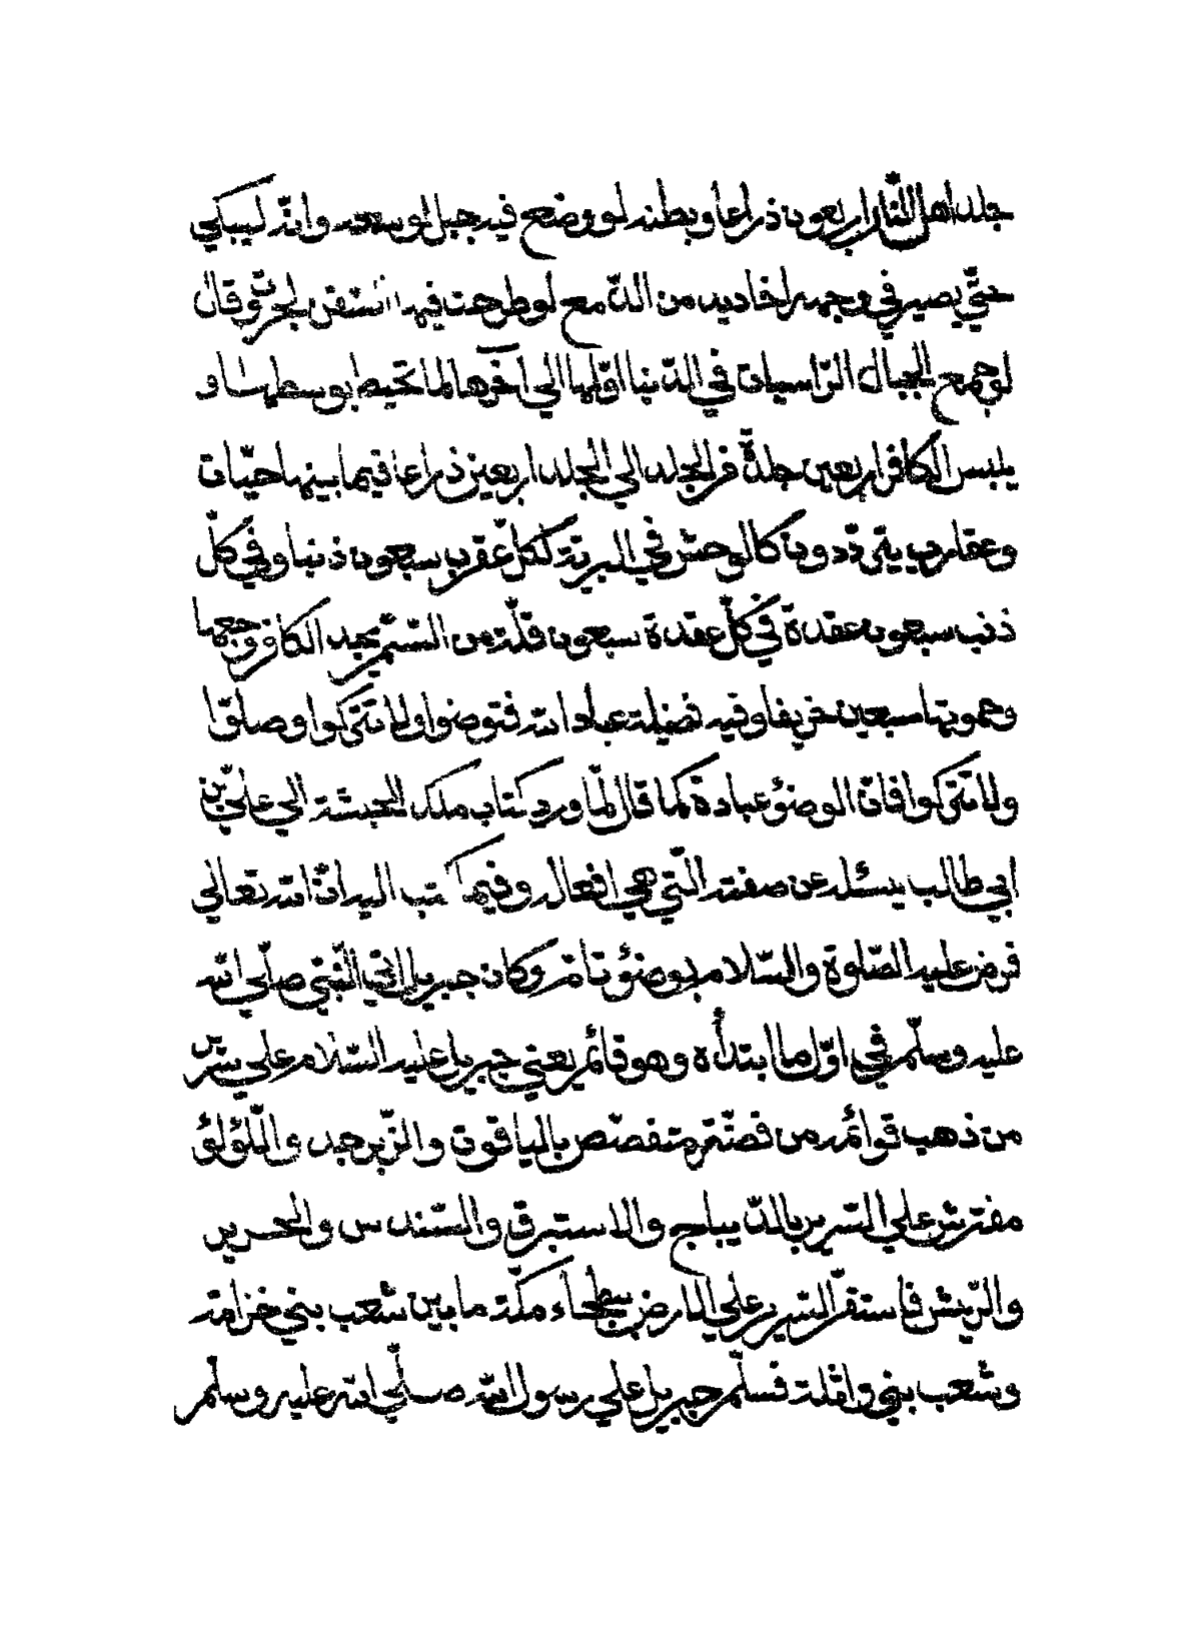 جلد اهل النّار اربعون ذراعا وبطنه لو وضع فيه جبل لوسعه وانّه ليبكي
حتّي يصير في وجهه اخاديد من الدّمع لو طرحت فيها السّفن لجرت وقال
لو جمع الجبال الرّاسيات في الدّنيا اوّلها الي آخرها لما تحيط بوسطها و
يلبس الكافر اربعين جلدة من الجلد الي الجلد اربعين ذراعا فيما بينها حيّات
وعقارب يتردّدون كالوحش في البريّة لكلّ عقرب سبعون ذنبا وفي كلّ
ذنب سبعون عقدة في كلّ عقدة سبعون قلّة من السّمّ يجد الكافر وجعها
وحمويها سبعين خريفا وفيه فضيلة عباد الله فتوضوا ولا تتركوا وصلّوا
ولا تتركوا فانّ الوضوء عبادة كما قال لمّا ورد كتاب ملك الحبشة الي عليّ بن
ابي طالب يسئله عن صفته الّتي هي افعاله وفيما كتب اليه انّ الله تعالي
فرض عليه الصّلوة والسّلام بوضوء تامّ وكان جبريل اتي النّبيّ صلّي الله
عليه وسلّم في اوّل ما ابتدأه وهو قائم يعني جبريل عليه السّلام علي سرير
من ذهب قوائمه من فضّة متفصّص بالياقوت والزّبرجد واللّؤلؤ
مفترش علي السّرير بالدّيباج والاستبرق والسّندس والحرير
والرّيش فاستقرّ السّرير علي الارض بطحاء مكّة ما بين شعب بني خزامة
وشعب بني واقلة فسلّم جبريل علي رسول الله صلّي الله عليه وسلّم